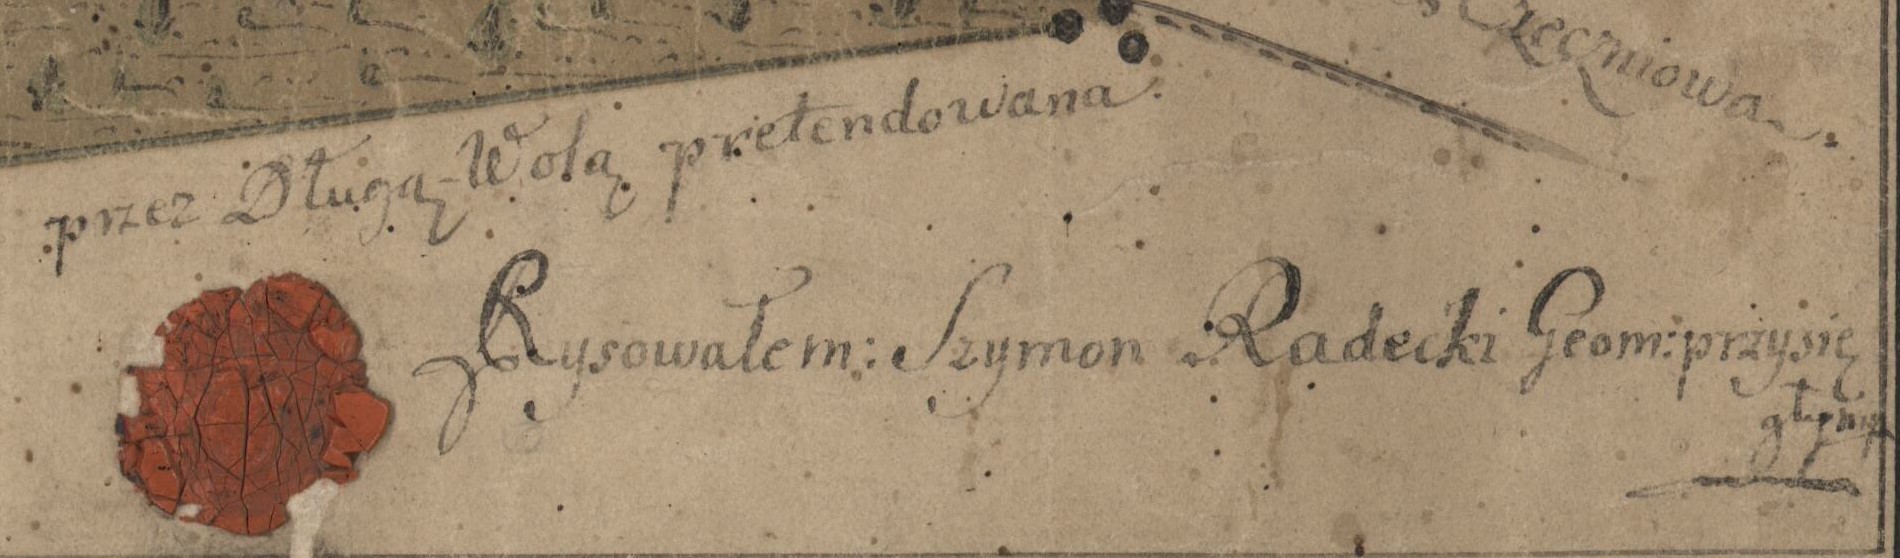 Częczniowa.
przez Długą-Wolą pretendowana.
Rysowałem: Szymon Radecki Geom: przysię
głym